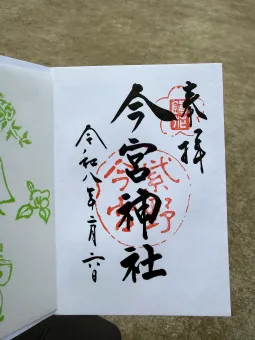 奉拝
今宮神社
令和八年二月六日
紫野
今宮